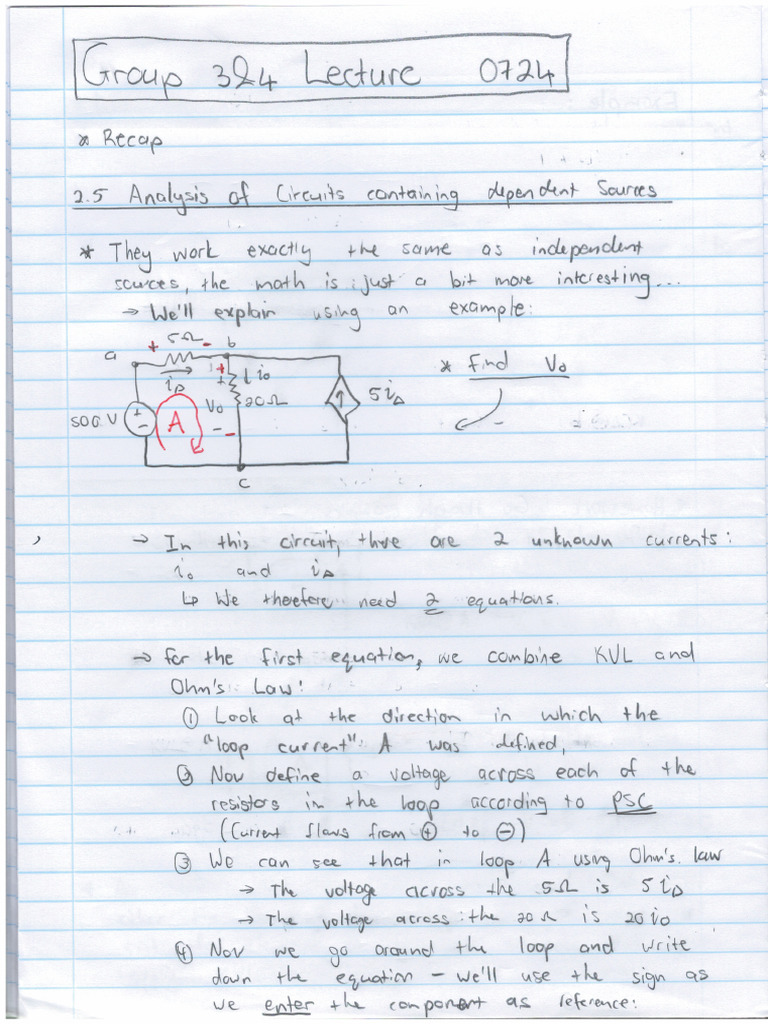 Group 3&4 Lecture 0724
* Recap
2.5 Analysis of Circuits containing dependent Sources
* They work exactly the same as independent
sources, the math is just a bit more interesting...
→ We'll explain using an example:
5Ω
a + - b
i∆ + io
* Find Vo
500 V + - A Vo 20Ω 5i∆
- -
c
→ In this circuit, there are 2 unknown currents:
io and i∆
↳ We therefore need 2 equations.
→ For the first equation, we combine KVL and
Ohm's Law:
① Look at the direction in which the
"loop current" A was defined,
② Now define a voltage across each of the
resistors in the loop according to PSC
(Current flows from ⊕ to ⊖)
③ We can see that in loop A using Ohm's law
→ The voltage across the 5Ω is 5i∆
→ The voltage across the 20Ω is 20io
④ Now we go around the loop and write
down the equation - we'll use the sign as
we enter the component as reference: